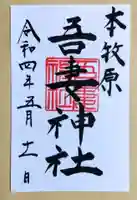 本牧原
吾妻神社
令和四年五月十一日